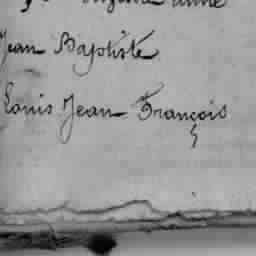 anne
Jean Baptiste
Louis Jean François